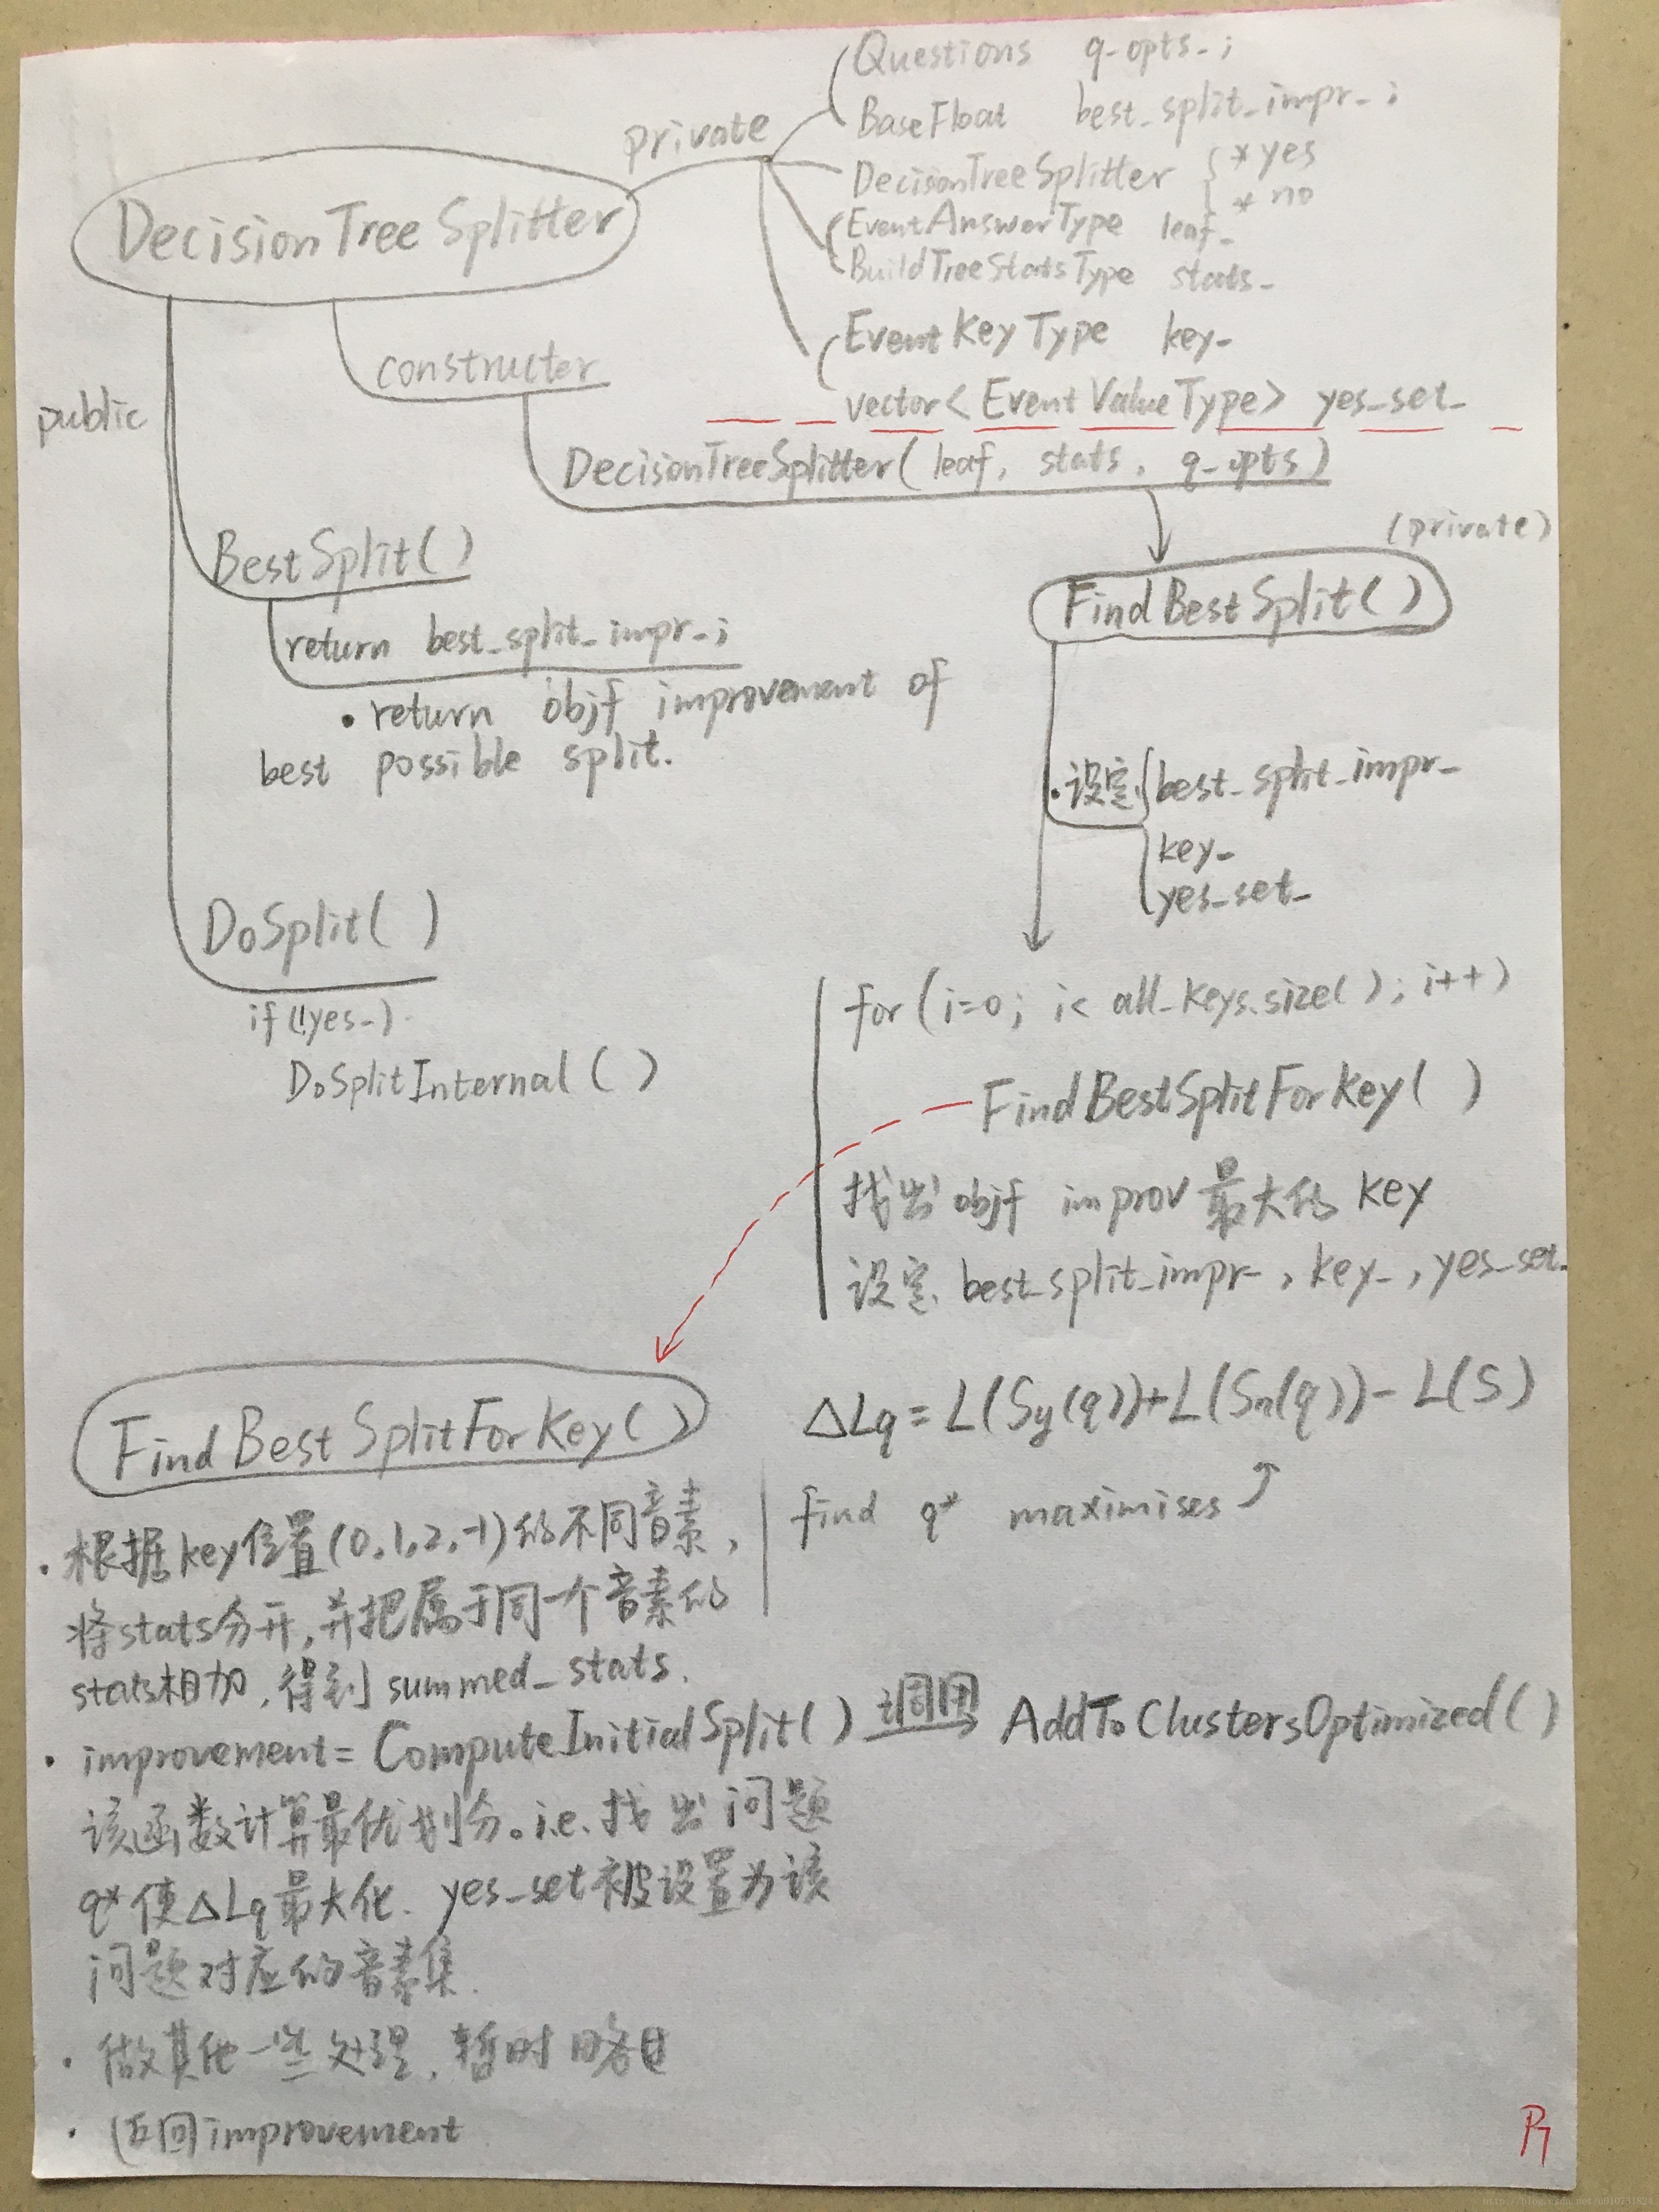 Questions q_opts_;
BaseFloat best_split_impr_;
private
DecisionTreeSplitter { *yes
*no
DecisionTreeSplitter
EventAnswerType leaf_
BuildTreeStatsType stats_
EventKeyType key_
constructer
public
vector<EventValueType> yes_set_
DecisionTreeSplitter(leaf, stats, q_opts)
(private)
BestSplit()
FindBestSplit()
return best_split_impr_;
• return objf improvement of
best possible split.
• 设定 { best_split_impr_
key_
yes_set_
DoSplit()
if(!yes_)
DoSplitInternal()
for(i=0; i< all_keys.size(); i++)
FindBestSplitForKey()
找出objf improv最大的key
设定 best_split_impr_, key_, yes_set_
ΔLq = L(Sy(q))+L(Sn(q))- L(S)
find q* maximises
FindBestSplitForKey()
• 根据key位置(0,1,2,-1)的不同音素,
将stats分开,并把属于同一个音素的
stats相加,得到summed_stats.
• improvement= ComputeInitialSplit() 调用 AddToClustersOptimized()
该函数计算最优划分。i.e.找出问题
q*使ΔLq最大化. yes_set被设置为该
问题对应的音素集.
• 做其他一些处理,暂时略
• 返回improvement
P7